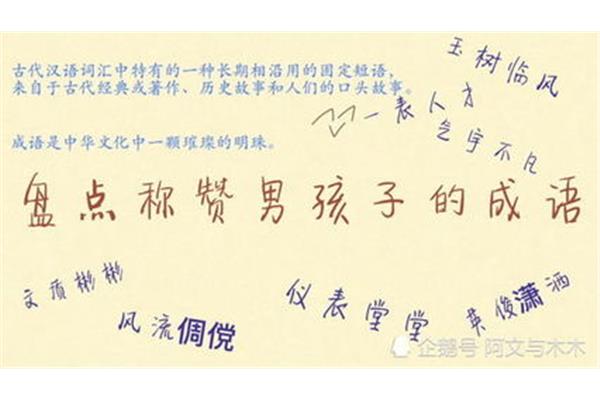 古代汉语词汇中特有的一种长期相沿用的固定短语，
来自于古代经典或著作、历史故事和人们的口头故事。
成语是中华文化中一颗璀璨的明珠。
玉树临风
一表人才
气宇不凡
盘点称赞男孩子的成语
文质彬彬
风流倜傥
仪表堂堂
英俊潇洒
企鹅号 阿文与木木